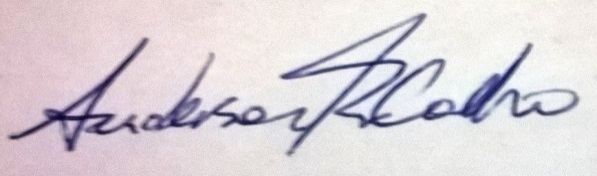 Anderson R Coelho